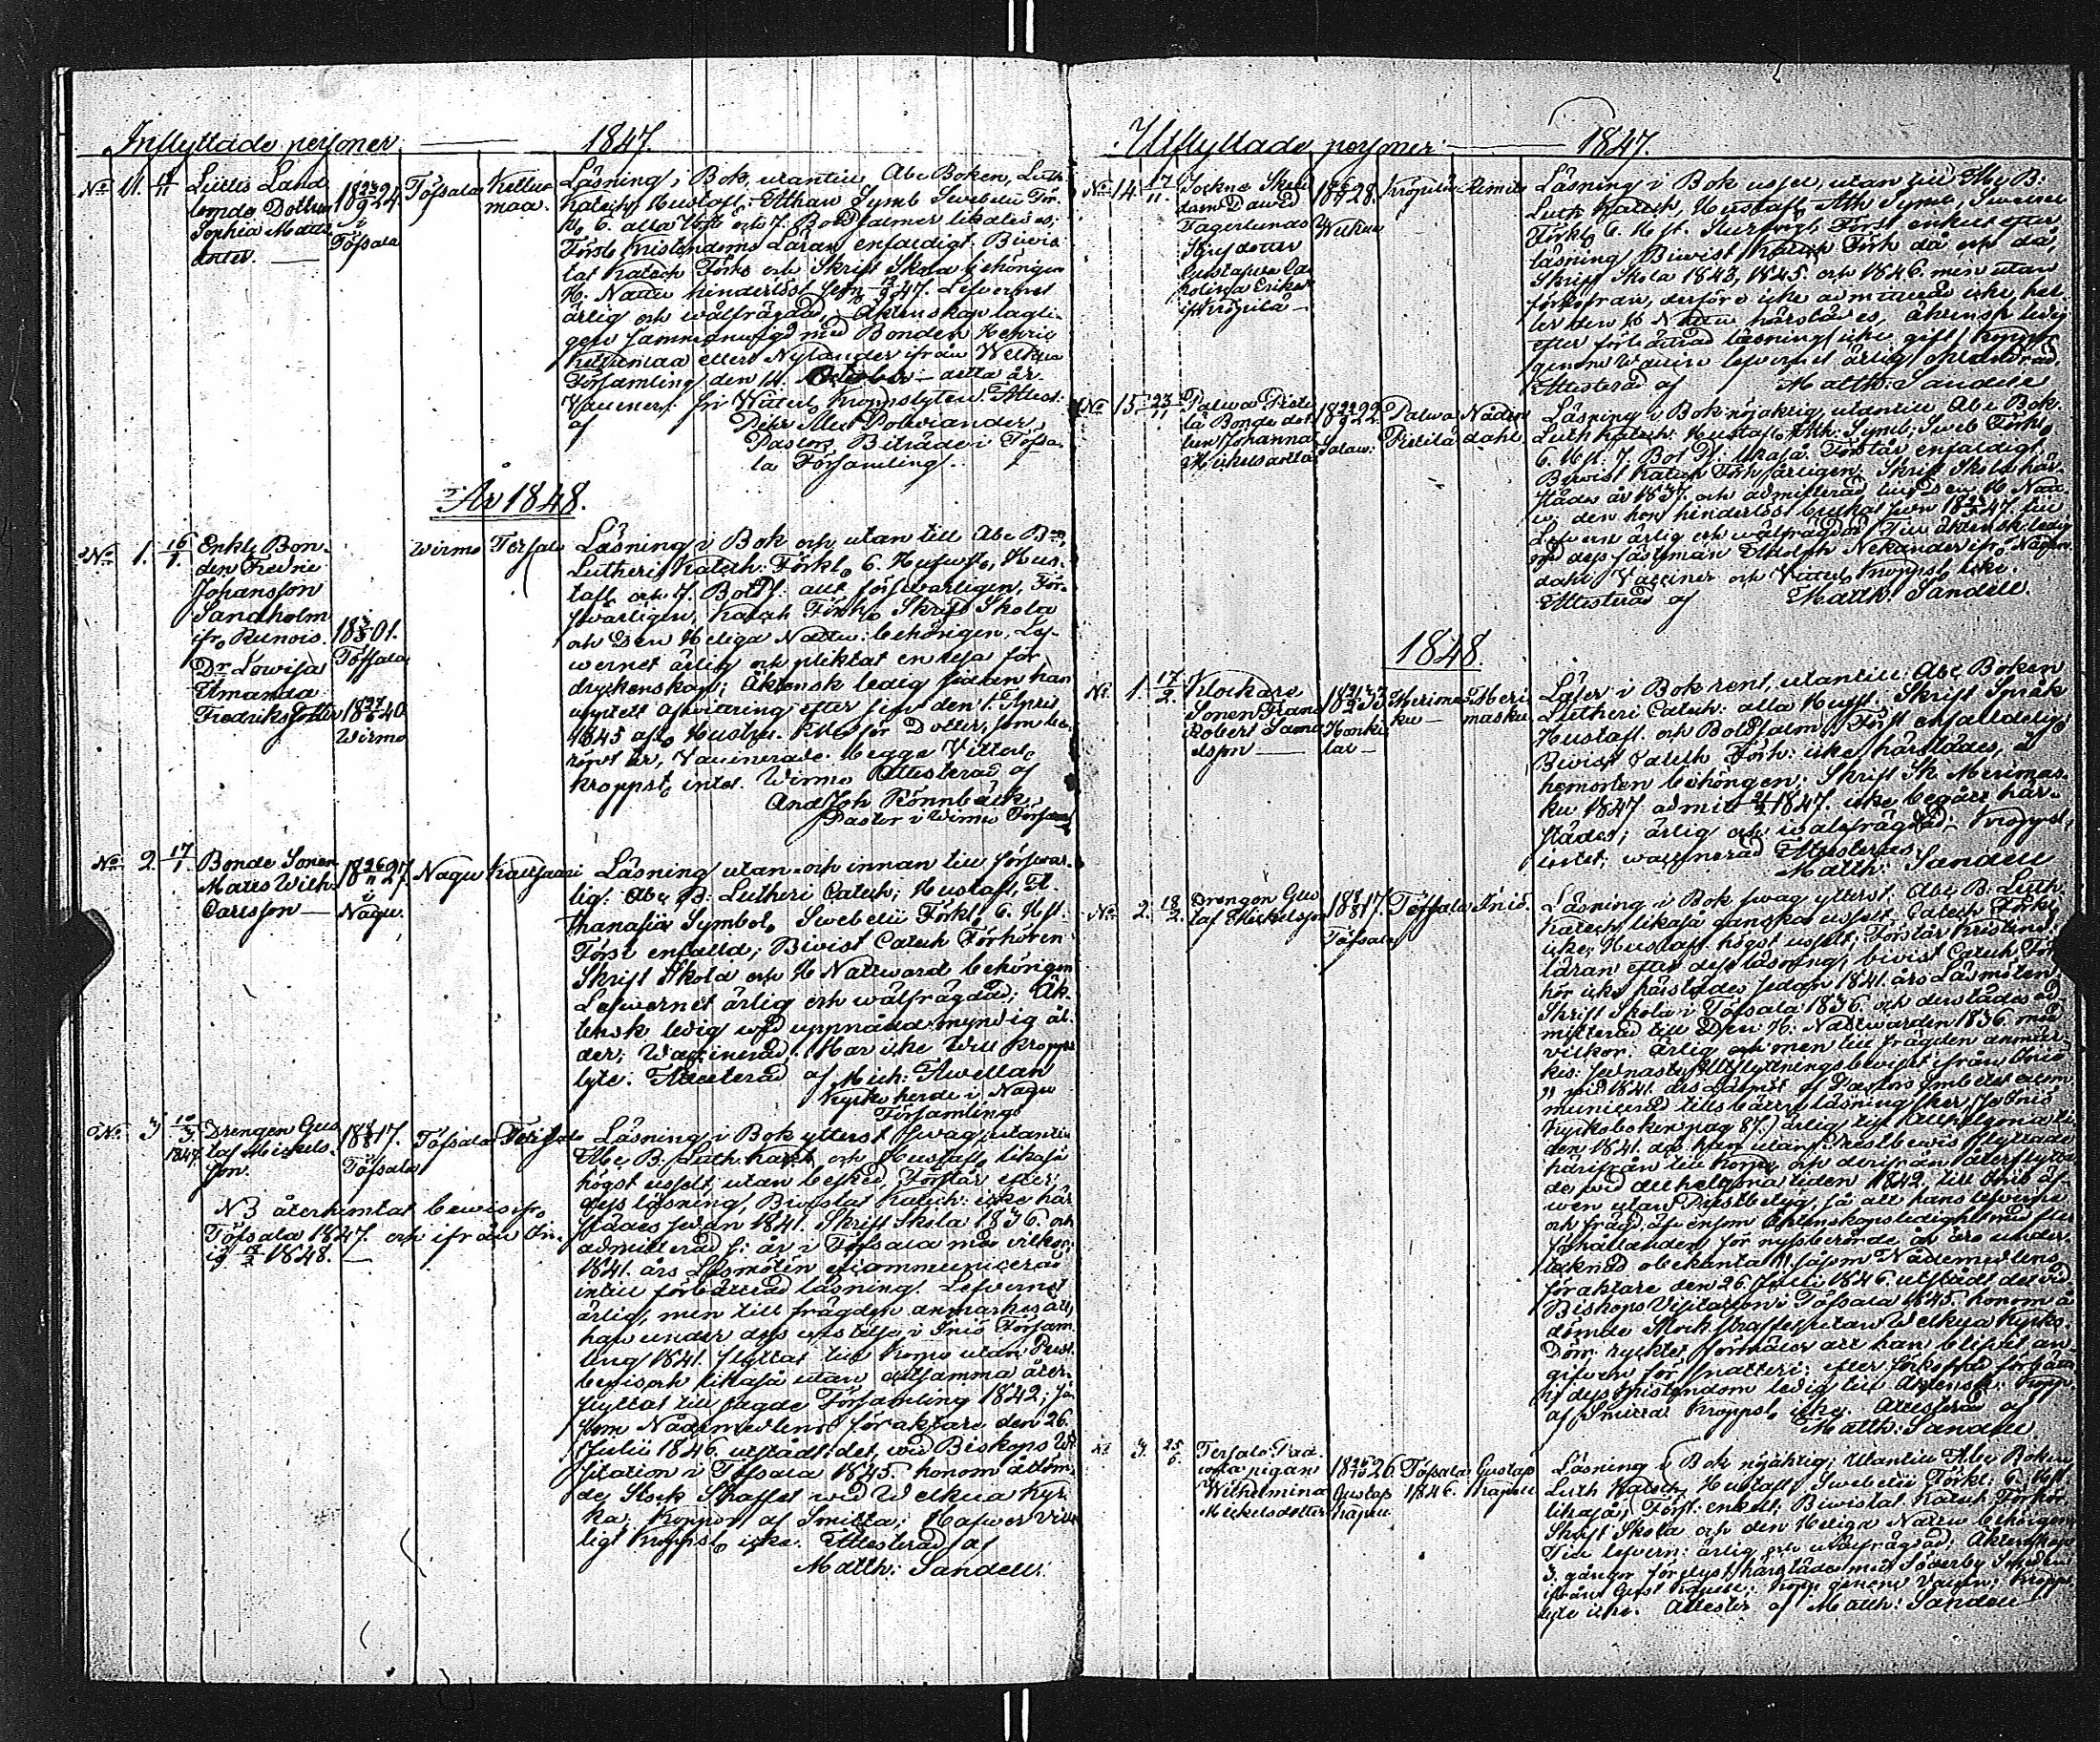 Inflyttade personer — 1847.
No 11. Lillis Land
bonde Dottren
Sophia Matts
dotter. —
18 23/9 24.
i
Töfsala
Töfsala
Kettu
maa.
Läsning i Bok, utantill Abc Boken, Luth
Katech, Hustafl, Athan Symb Swebelii För
kl. 6. alla Hft och 7. Botpsalmer likaledes;
Först. Kristendoms Läran enfaldigt. Biwis
tat Katech Förhr och Skrift Skola behörigen
H. Nattw hinderlöst sedn 47. Lefvernet
ärlig och wälfrägdad, Äktenskap lagli-
gen sammanwigd med Bonden Henric
Kettumaa eller Nylander ifrån Welkua
Församling den 11. October — detta år.
Vaccinerad. fri Witterl. Kroppslyten. Attest.
af Pehr Alb Polviander
Pastors Biträde i Töfsa-
la Församling.
År 1848.
No 1. 16/1. Enkl. Bon-
den Fredric
Johansson
Sandholm
ifr. Runois.
Dr Lowisa
Amanda
Fredriksdotter
18 3/5 01.
Töfsala
18 27/6 40
Wirmo
Wirmo
Tersalo
Läsning i Bok och utan till Abc B—n,
Lutheri Katech: Förkl. 6. Hufwst, Hus-
tafl och 7. BotPs. allt försvarligen, För.
svarligen, Katech Förhr Skrift Skola
och Den Heliga Nattw: behörigen. Lef-
wernet ärlig och pliktat en resa för
dryckenskap; Äktensk ledig sedan han
upptett afwittring efter sin den 1. April
1845 afl. Hustru. Likaså för Dotter, som be-
rörd är, Vaccinerade begge Vitterl.
kroppst. intet. Wirmo Attesterad af
And Joh Rönnbäck,
Pastor i Wirmo Förs.
No 2. 17/1. Bonde Sonen
Matts Wilh.
Carlsson —
18 26/11 27.
i
Nagu.
Nagu
Kaitsaari
Läsning utan- och innan till försvar-
lig: Abc B. Lutheri Catech; Hustafl, A-
thanasii Symbol, Swebelii Förkl. 6. Hft.
Först enfalld; Biwist Catech Förhören
Skrift Skola och H. Nattward behörigen
Lefwernet ärlig och wälfrägdad; Äk-
tensk ledig wid uppnådd myndig ål-
der; Waccinerad. Har icke Witt kropps
lyte. Attesterad af Mich: Awellan
Kyrkoherde i Nagu
Församling
No 3. 10/3
1847.
Drengen Gus
taf Mickels-
son.
18 8/8 17.
Töfsala
Töfsala
Tersalo
N 3 återhämtat bewis ifr.
Töfsala 1847. och ifrån In-
iö 18/2 1848. —
Läsning i Bok ytterst swag, utantill
Abc B. Luth. Kat. och Hustafl. likaså
högst uselt utan besked, Förstår efter
dess läsning, Biwistat Katech: icke här
städes sedan 1841. Skrift Skola 1836. och
admitterad s: år i Töfsala med vilkor,
1841. års Läsmöten excommunicerad
intill förbättrad läsning. Lefwernet
ärlig, men till frägden anmärkes att
han under dess wistelse i Iniö Försam
ling 1841. flyttat till Korpo utan Prest-
bewis och likaså utan detsamma åter-
flyttat till sagde Församling 1842; så
som Nådemedlens föraktare den 26.
Julii 1846. utstådt det, wid Biskops Vi
sitation i Töfsala 1845. honom ådöm-
de, Stock Straffet wid Welkua Kyr-
ka. Koppor af Smitta; Hafwer Vitter
ligt kroppsl. icke. Attesterad af
Matth: Sandell.
Utflyttade personer. — 1847.
No 14. 17/11. Jockne Skrä
daren David
Fagerlunds
Styfdotter
Gustafwa Ca
rolina Eriksd
if. Kropilä —
28.
Welkua
Kropilä
Rimito
Läsning i Bok ussel, utan till Abc B:
Luth Katech, Hustafl Ath Symb, Swebel
Förkl. 6. Hft. Först enkelt efter
läsning, Biwist Katech Förh då och då,
Skrift Skola 1843, 1845. och 1846. men utan
förkofran, derföre icke admitterad icke hel-
ler den H. Nattw härstädes, äktensk ledig
efter förbättrad läsning icke gift, Koppor
genom Vaccin lefvernet ärlig oklandrad.
Attesterad af Matth: Sandell
No 15. 23/11. Palwa Piete
lä Bonde dot
tren Johanna
Mickelsdotter
18 22.
Palwa
Pietilä
Näden-
dahl
Läsning i Bok nöjaktig, utantill Abc Bok.
Luth Katech: Hustafl, Ath: Symb; Sweb Förkl.
6. Hft. 7. Bot Ps. likaså. Förstår enfaldigt.
Biwist Katech Förh. Skrift Skola här-
städes år 1837. och admitterad till Den H. Natt-
w. den hon hinderlöst begått sedn 47. till
Lefvern ärlig och wälfrägdad, Till äktensk ledig
med dess fästman Adolph Nekander ifr. Näden
dahl, Vacciner och Vitterl. Kroppsl. icke.
Attesterad af Matth: Sandell.
1848.
No 1. 17/2. Klockare
Sonen Frans
Robert Samu
elsson —
33
Merimas
ku —
Meri
masku.
Läser i Bok rent, utantill: Abc Boken
Lutheri Catech: alla Hufst. Skrift Språk
Hustafl. och BotPsalm. Först enfalldeligt
Biwist Catech Förh: icke härstädes, å
hemorten behörigen; Skrift Sk. Merimas-
ku 1847. admitt 1847. icke begått här-
städes; ärlig och wälfrägdad; Kroppsl.
intet; waccinerad Attesteras
Matth: Sandell
No 2. 18/2. Drengen Gus
taf Mickelsson
18 8/8 17.
Töfsala
Töfsala
Iniö.
Läsning i Bok swag ytterst, Abc B. Luth.
Katech likaså ganska uselt, Catech Förkl.
icke, Hustafl. högst uselt; Förstår Kristend.
läran efter dess läsning; bivist Catech. För
hör icke härstädes sedan 1841. års Läsmöten,
Skrift Skola i Töfsala 1836. och derstädes ad-
mitterad till Den H. Nattwarden 1836. med
vilkor. Ärlig och men till frägden anmär-
kes: senaste Utflyttningsbewiset ifrån Iniö
„ wid 1841. års Läsmöt. af Pastors Embetet excom-
municerad tills bättre läsning sker, (Se Iniö
Kyrkoboken pag 87.) ärlig till Allhelgona ti-
den 1841. då han utan Prestbewis flyttade
härifrån till Korpo och derifrån återflytta-
de wid allhelgona tiden 1842, till Iniö äf-
wen utan Prestbetyg, så att hans lefwerne
och frägd, äfvensom Äktenskapsledighet med flere
förhållanden för nyssberörde år äro under-
tecknad obekanta„ såsom Nådemedlens
föraktare den 26 Julii 1846. utstådt det wid
Biskops Visitation i Töfsala 1845. honom å-
dömde Stock straffet utan Welkua Kyrko
Dörr. ryktet förmäler att han blifvit an-
gifwen för snatteri; efter förkofrad förbättr
af dess Kristendom ledig till Äktensk: Kopp.
af Smitta Kroppsl. icke. Attesterad af
Matth: Sandell
No 3. 25/5 Tersalo Paa
wola pigan
Wilhelmina
Mickelsdotter
26.
Gustaf
kapell
Töfsala
1846.
Gustaf
kapell
Läsning i Bok nöjaktig; Utantill Abc Boken
Luth Katech, Hustafl, Swebelii Förkl: 6. Hft.
likaså; Först: enkelt; Biwistat Katech Förhör
Skrift Skola och den Heliga Nattw behörigen
Till lefvern: ärlig och wälfrägdad; Äktenskap
3. gånger förelyst härstädes med
ifrån Gust Kapell; Kopp. genom Vaccin; Kropps
lyte icke. Attester af Matth: Sandell